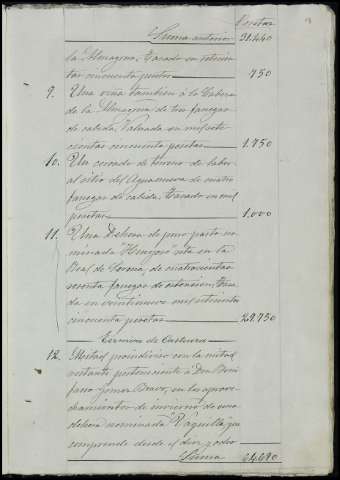 Pesetas
Suma anterior 31.440
la Almagrera, tasado en setecien
tas cincuenta pesetas 750
9. Una viña tambien á la Cabeza
de la Almagrera de tres fanegas
de cabida, Valuada en mil sete
cientas cincuenta pesetas 1.750
10. Un cercado de terreno de labor
al sitio del Aguanueva de cuatro
fanegas de cabida, tasado en mil
pesetas 1.000
11. Una Dehesa de puro pasto no
minada sita en la
Real de Serena, de cuatrocientas
sesenta fanegas de extension,
da en veintinueve mil setecientas
cincuenta pesetas 29.750
Termino de Castuera
12. Mitad proindiviso con la mitad
restante perteneciente á Don Boni
facio Gomez Bravo, en los aprove
chamientos de invierno de una
dehesa nominada que
comprende desde el diez y ocho
Suma 64.690